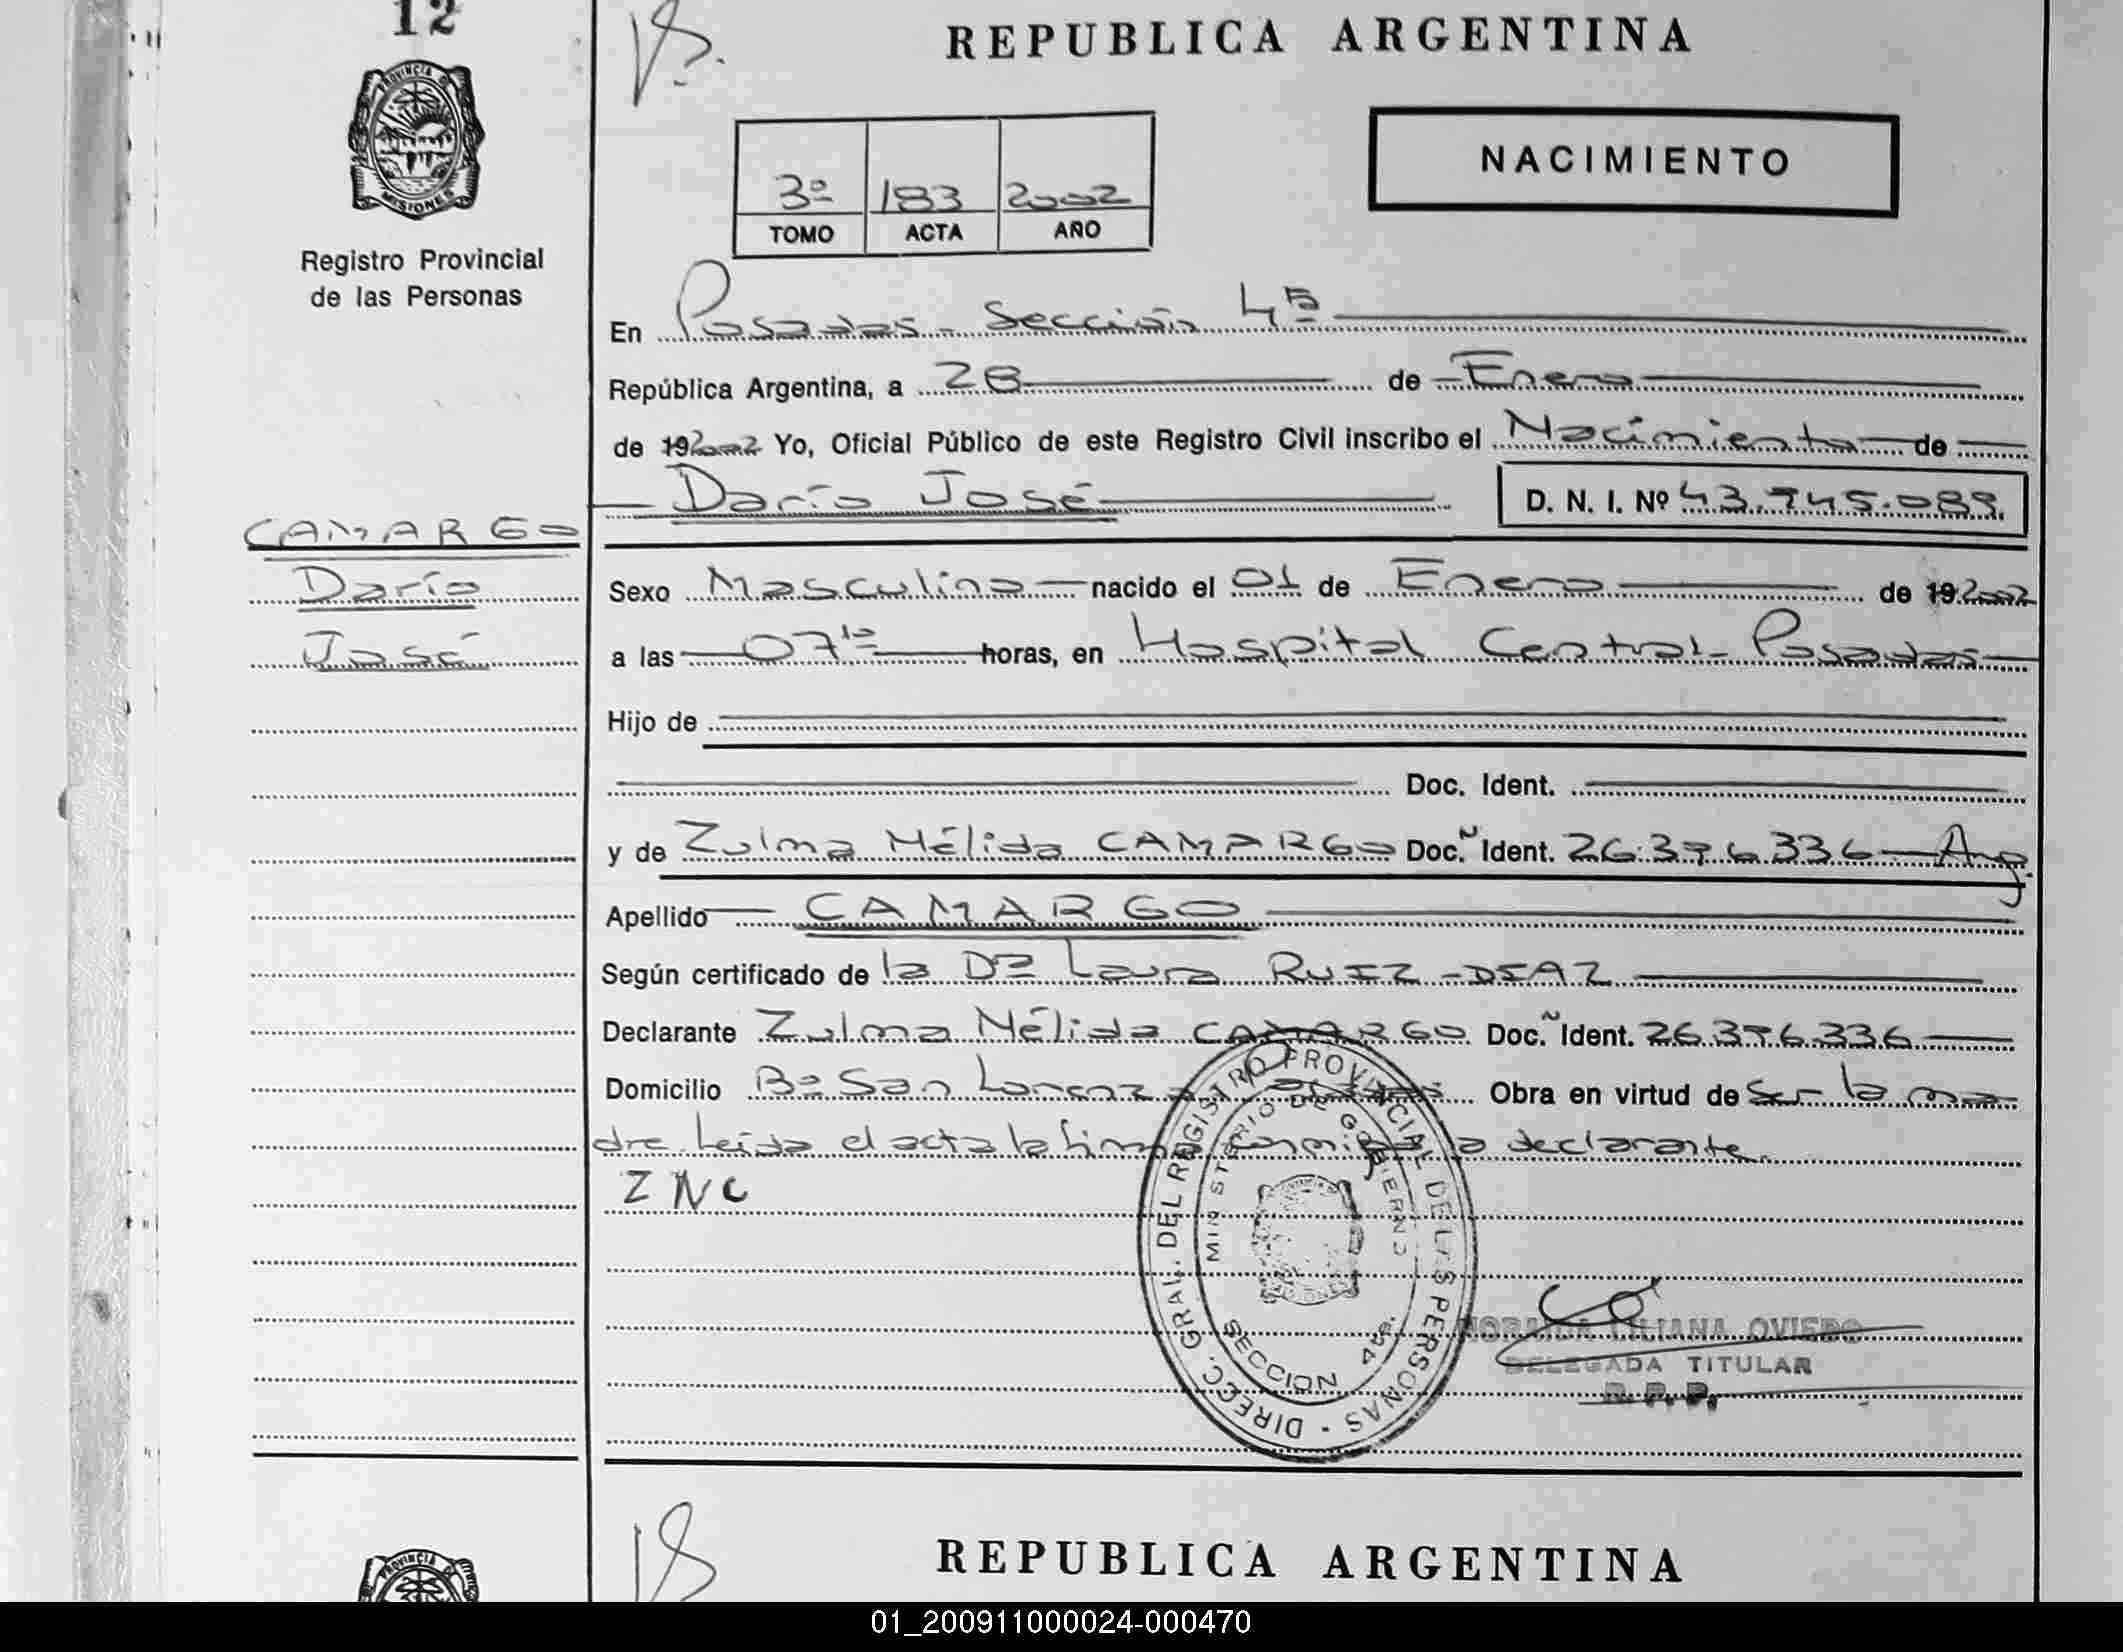 12
REPUBLICA ARGENTINA
PROVINCIA DE
MISIONES
Registro Provincial
de las Personas
NACIMIENTO
3º 183 2002
TOMO ACTA AÑO
En Posadas - Sección 4ª
República Argentina, a 28 de Enero
de 192002 Yo, Oficial Público de este Registro Civil inscribo el Nacimiento de
Darío José D. N. I. Nº 43.745.089.
CAMARGO
Darío
José
Sexo Masculino nacido el 01 de Enero de 192002
a las 07 10 horas, en Hospital Central - Posadas
Hijo de
Doc. Ident.
y de Zulma Nélida CAMARGO Doc. Ident. 26.376.336 - Arg.
Apellido CAMARGO
Según certificado de la Dra Laura RUIZ - DIAZ
Declarante Zulma Nélida CAMARGO Doc. Ident. 26.376.336
Domicilio Bº San Lorenzo Obra en virtud de ser la ma
dre. Leída el acta la firma conmigo la declarante.
Z N C
DIRECC. GRAL. DEL REGISTRO PROVINCIAL DE LAS PERSONAS -
MINISTERIO DE GOBIERNO
SECCION 4ta.
LILIANA OVIEDO
DELEGADA TITULAR
R. P. P.
REPUBLICA ARGENTINA
PROVINCIA
01_200911000024-000470